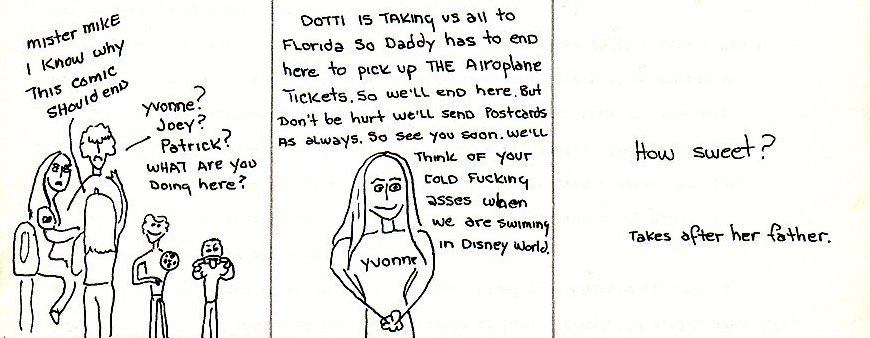 mister mike
I Know why
This comic
should end
Yvonne?
Joey?
Patrick?
WHAT Are you
Doing here?
DOTTI IS TAKing us all to
Florida so Daddy has to end
here to pick up THE Airoplane
Tickets. So we'll end here. But
Don't be hurt we'll send Postcards
As always. So see you soon. we'll
Think of your
COLD FUCKING
asses when
we are swiming
in Disney World.
yvonne
How sweet?
Takes after her father.